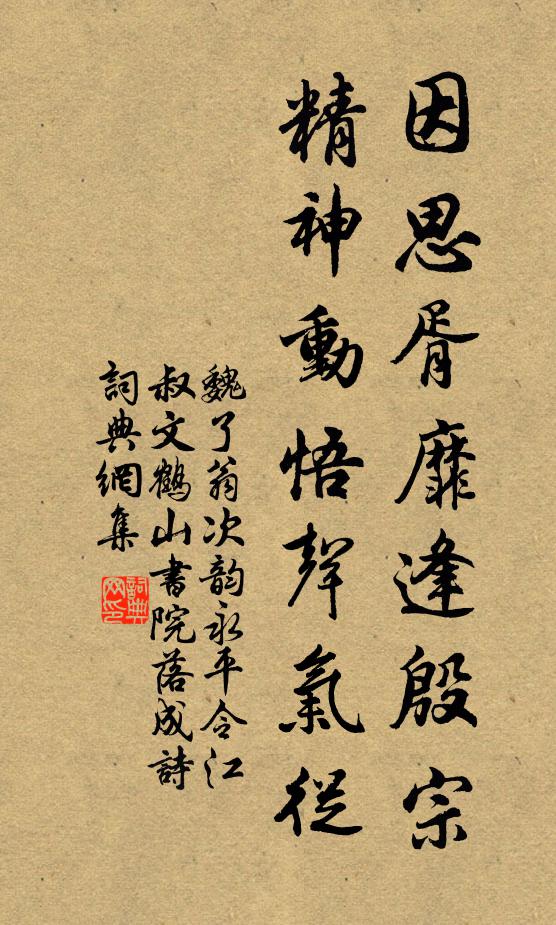 因思胥靡逢殷宗
精神動悟聲氣從
魏了翁次韵永平令江
叔文鶴山書院落成詩
詞典網集
詞典
网印